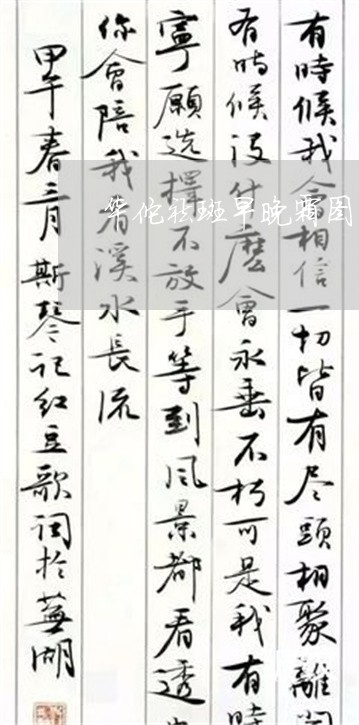 有時候我会相信一切皆有尽頭相聚離
有時候没什麽會永垂不朽可是我有時
寧願选擇不放手等到風景都看透
你會陪我看溪水長流
甲午春三月斯琴记红豆歌词於蕪湖
华佗祛斑早晚霜图